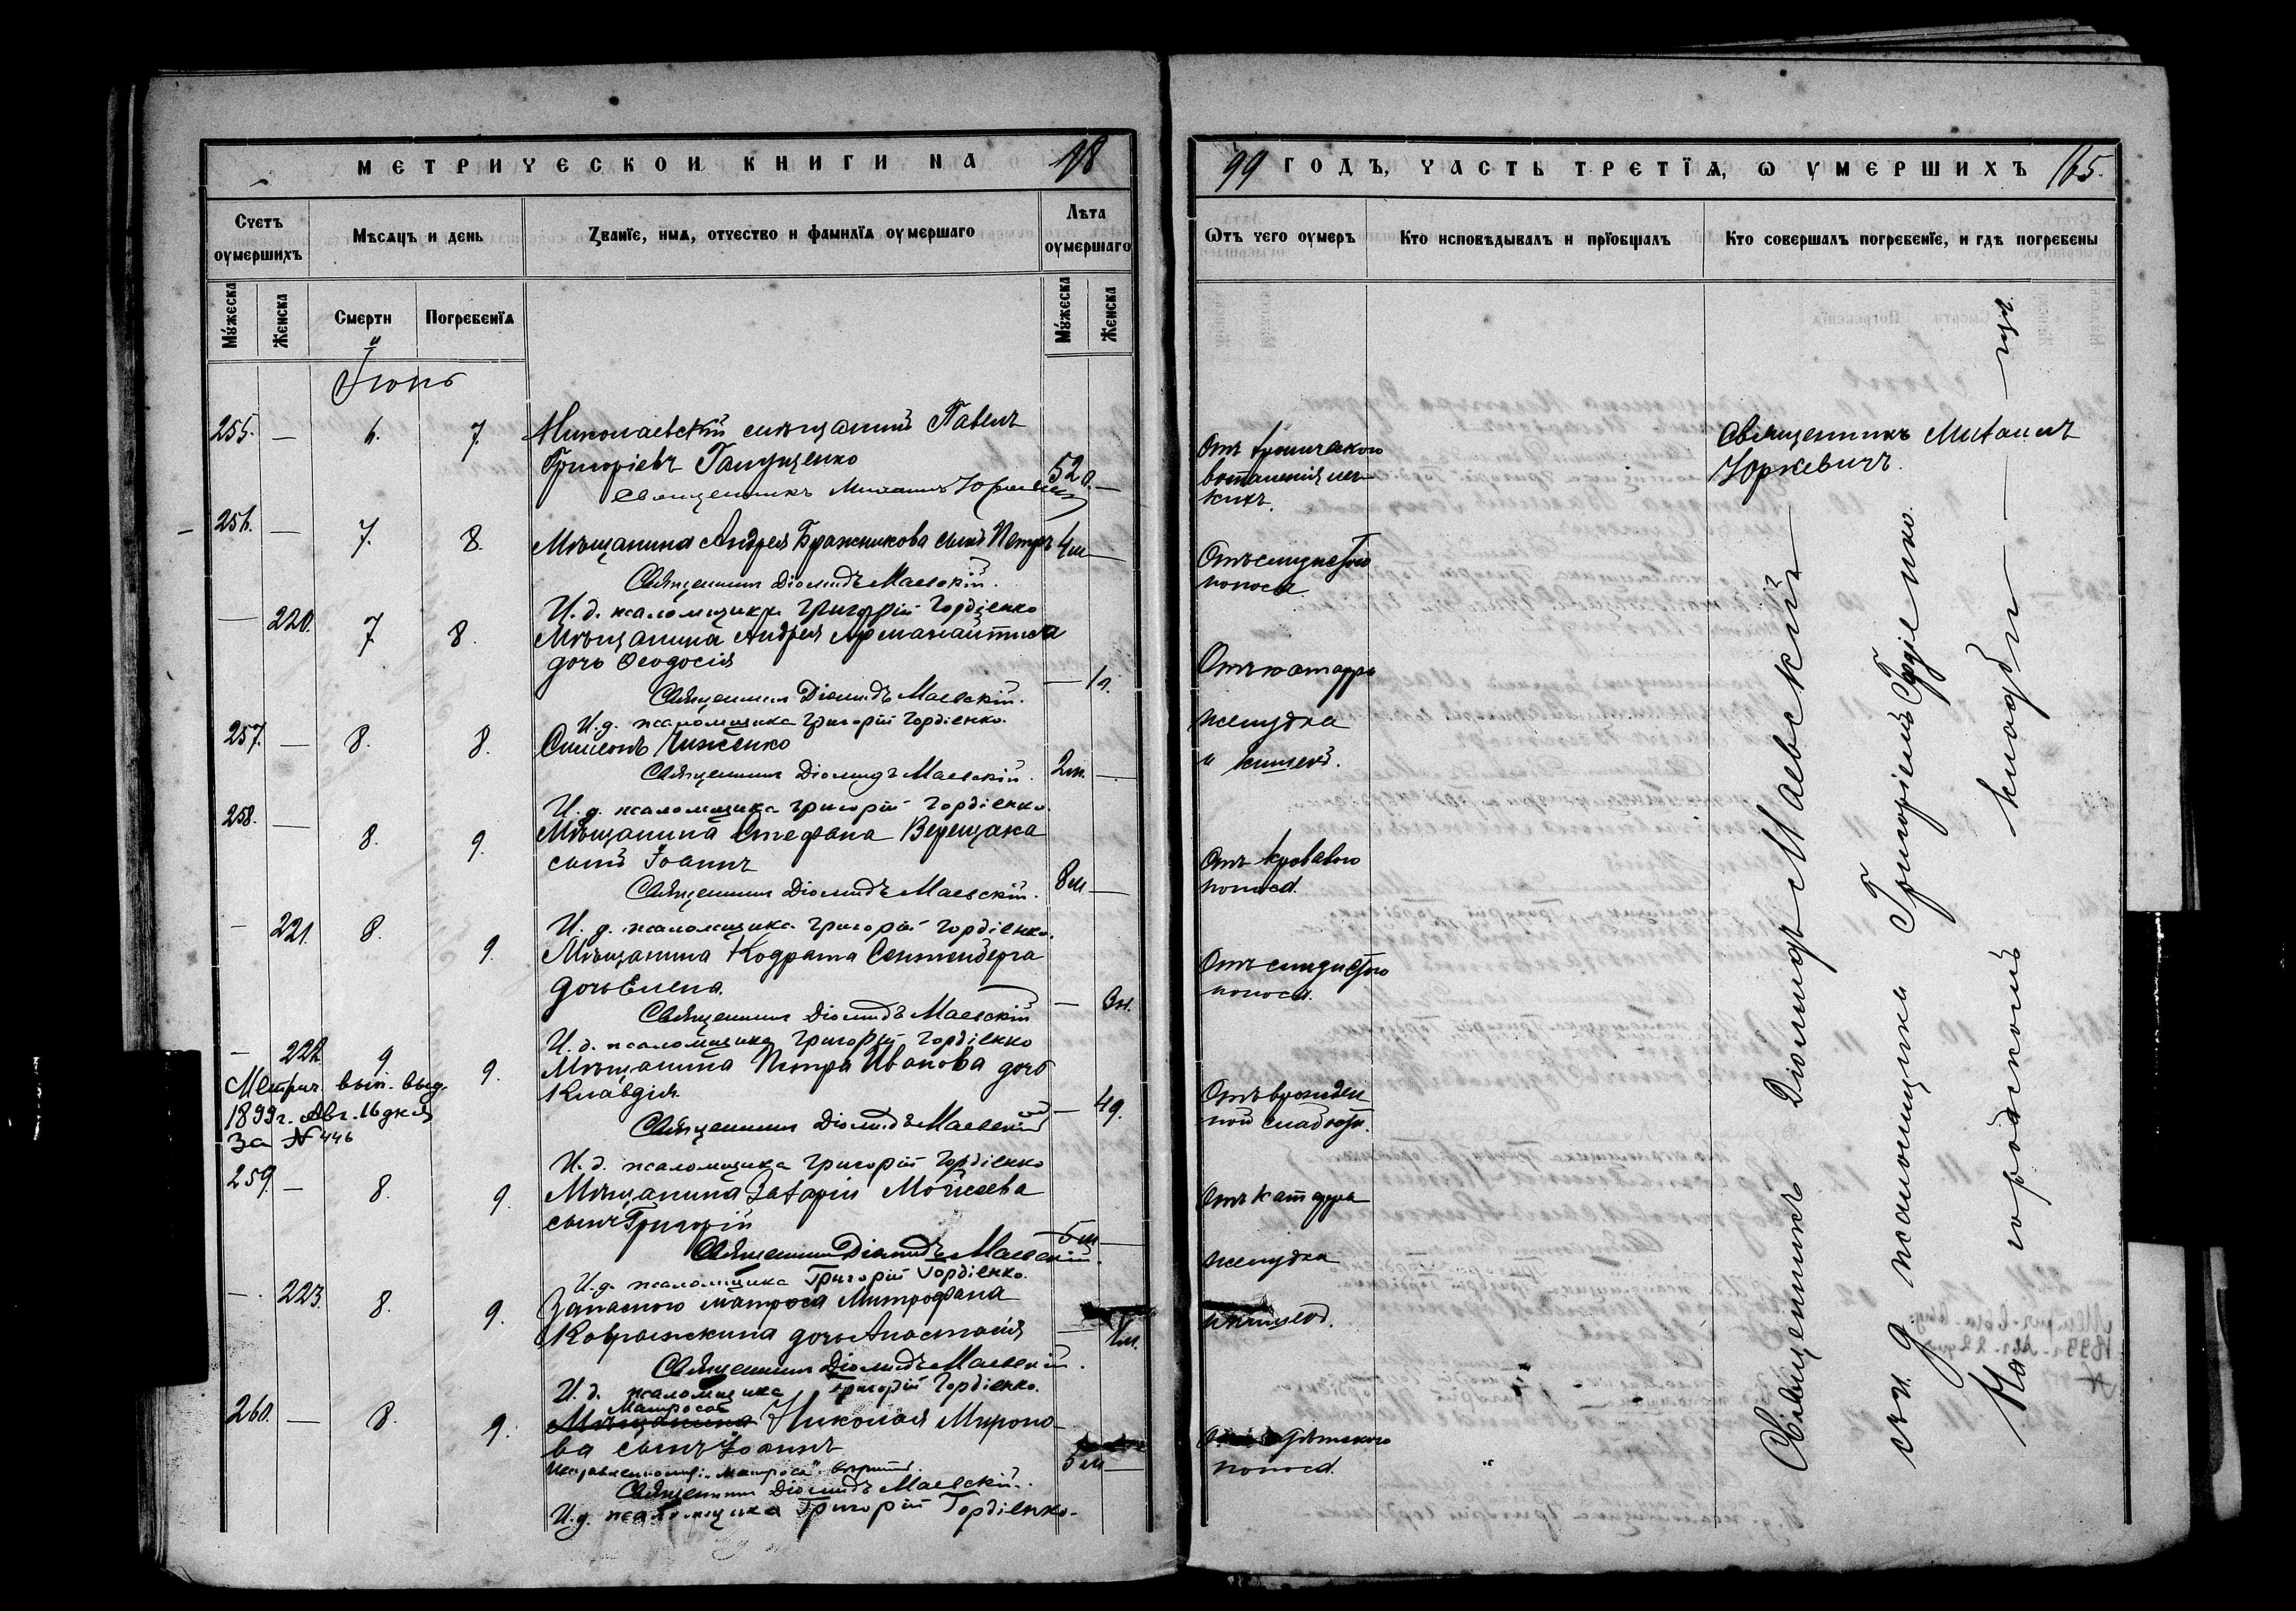 МЕТРИЧЕСКОИ КНИГИ НА 18
99 ГОДЪ, ЧАСТЬ ТРЕТІѦ, Ѡ УМЕРШИХЪ 165.
Счетъ оумершихъ
Мѣсяцъ и день
Званіе, имя, отчество и фамилїя оумершаго
Лѣта оумершаго
Ѿтъ чего оумеръ
Кто исповѣдывалъ и прїобщалъ
Кто совершалъ погребенїе, и гдѣ погребены
Мужеска
Женска
Смерти
Погребенїя
Мужеска
Женска
Іюнь
255. — 6. 7. Николаевскій мѣщанинъ Павелъ
Григоріевъ Галущенко 52 —
Священникъ Михаилъ Юркевичъ
Отъ хроническаго
воспаленія лег-
кихъ.
Священникъ Михаилъ
Юркевичъ.
256. — 7. 8. Мѣщанина Андрея Бражникова сынъ Петръ 4м —
Священникъ Діомидъ Маевскій.
И. д. псаломщика Григорій Гордіенко
Отъ слизистого
поноса
— 220. 7 8. Мѣщанина Андрея
дочь Ѳеодосія — 1г.
Священникъ Діомидъ Маевскій.
И. д. псаломщика Григорій Гордіенко.
Отъ катарра
желудка
и кишекъ.
257. — 8. 8. Симеонъ Чиженко
Священникъ Діомидъ Маевскій. 2м. —
И. д. псаломщика Григорій Гордіенко.
258. — 8. 9. Мѣщанина Стефана Верещака
сынъ Іоаннъ
Священникъ Діомидъ Маевскій. 8м —
И. д. псаломщика Григорій Гордіенко.
Отъ кроваваго
поноса.
— 221. 8. 9. Мѣщанина Кодрата
дочь Елена.
Священникъ Діомидъ Маевскій — 3м.
И. д. псаломщика Григорій Гордіенко
Отъ слизистого
поноса.
— 222. 9. 9. Мѣщанина Петра Иванова дочь
Клавдія
Священникъ Діомидъ Маевскій — 4д.
И. д. псаломщика Григорій Гордіенко
Метрич. вып. выд.
1899г. Авг. 16 дня
за № 446
Отъ врожден
ной слабости.
259. — 8. 9. Мѣщанина Захарія Моисеева
сынъ Григорій 5м —
Священникъ Діомидъ Маевскій.
И. д. псаломщика Григорій Гордіенко.
Отъ катарра
желудка
и кишекъ.
— 223. 8. 9. Запасного матроса Митрофана
дочь Анастасія —
Священникъ Діомидъ Маевскій.
И. д. псаломщика Григорій Гордіенко.
260. — 8. 9. Матроса
Мѣщанина Николая Мироно-
ва сынъ Іоаннъ 5м —
Исправленному: „Матроса“ вѣрить.
Священникъ Діомидъ Маевскій.
И. д. псаломщика Григорій Гордіенко.
дѣтского
поноса.
Священникъ Діомидъ Маевскій —
съ и. д. псаломщика Григоріемъ Гордіенко.
На городскомъ кладби — щѣ.